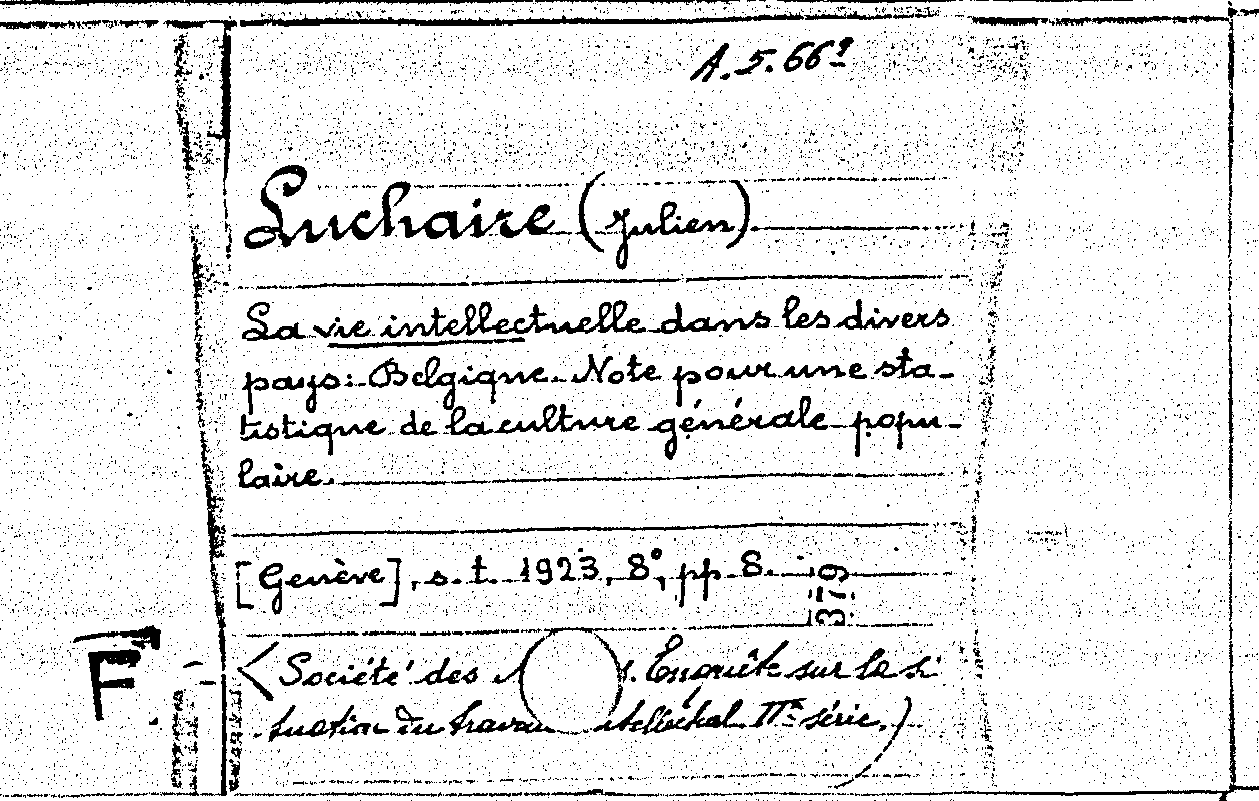 A.5.66?
Luchaire (Julien)
La vie intellectuelle dans les divers
pays: Belgique. Note pour une sta-
tistique de la culture générale popu-
laire.
[Genève], s. t. 1923, 8°, pp. 8.
379
F
(Société des Enquête sur la si
tuation du travail intellectuel IIe série.)